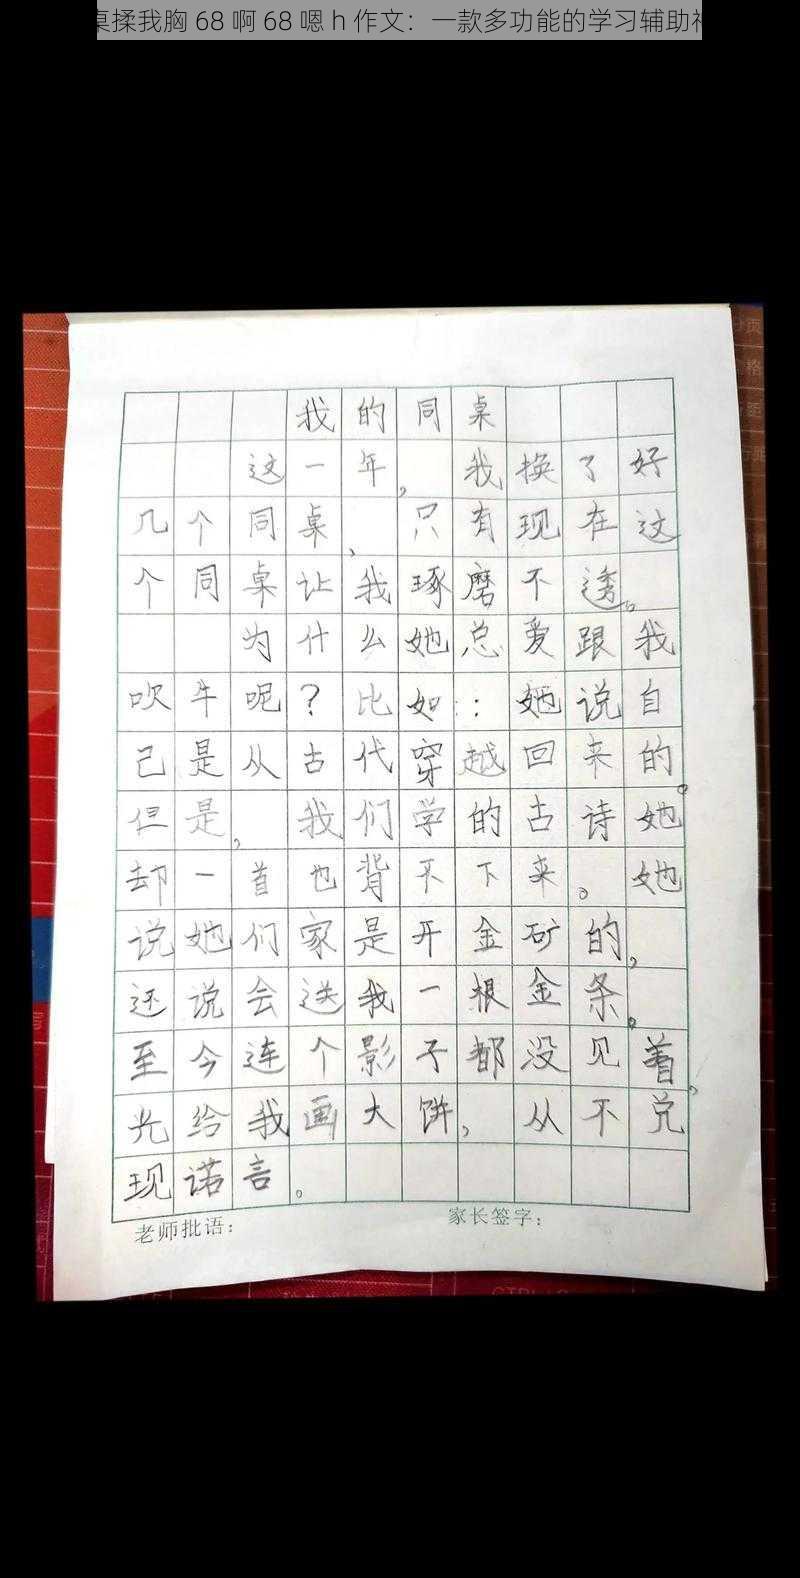 桌揉我胸 68 啊 68 嗯 h 作文：一款多功能的学习辅助神
我的同桌
这一年，我换了好
几个同桌，只有现在这
个同桌让我琢磨不透。
为什么她总爱跟我
吹牛呢？比如：她说自
己是从古代穿越回来的。
但是，我们学的古诗她
却一首也背不下来。她
说她们家是开金矿的，
还说会送我一根金条。
至今连个影子都没见着，
光给我画大饼，从不兑
现诺言。
老师批语：
家长签字：